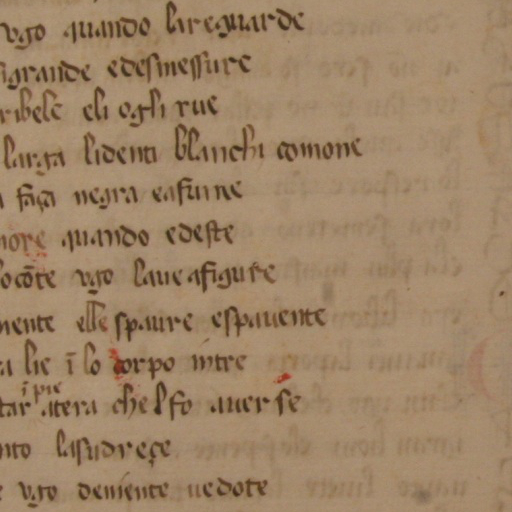 vgo quando lareguarde
grande edesmessure
ribele eli ogli rue
larga lidenti blanchi comone
faça negra eafume
more quando edeste
lo cōte vgo lave afigure
mente elle spaure espauente
a lie ī lo corpo intre
tar ī pie atera chel fo auerse
nto lasudreçe
vgo deniente uedote